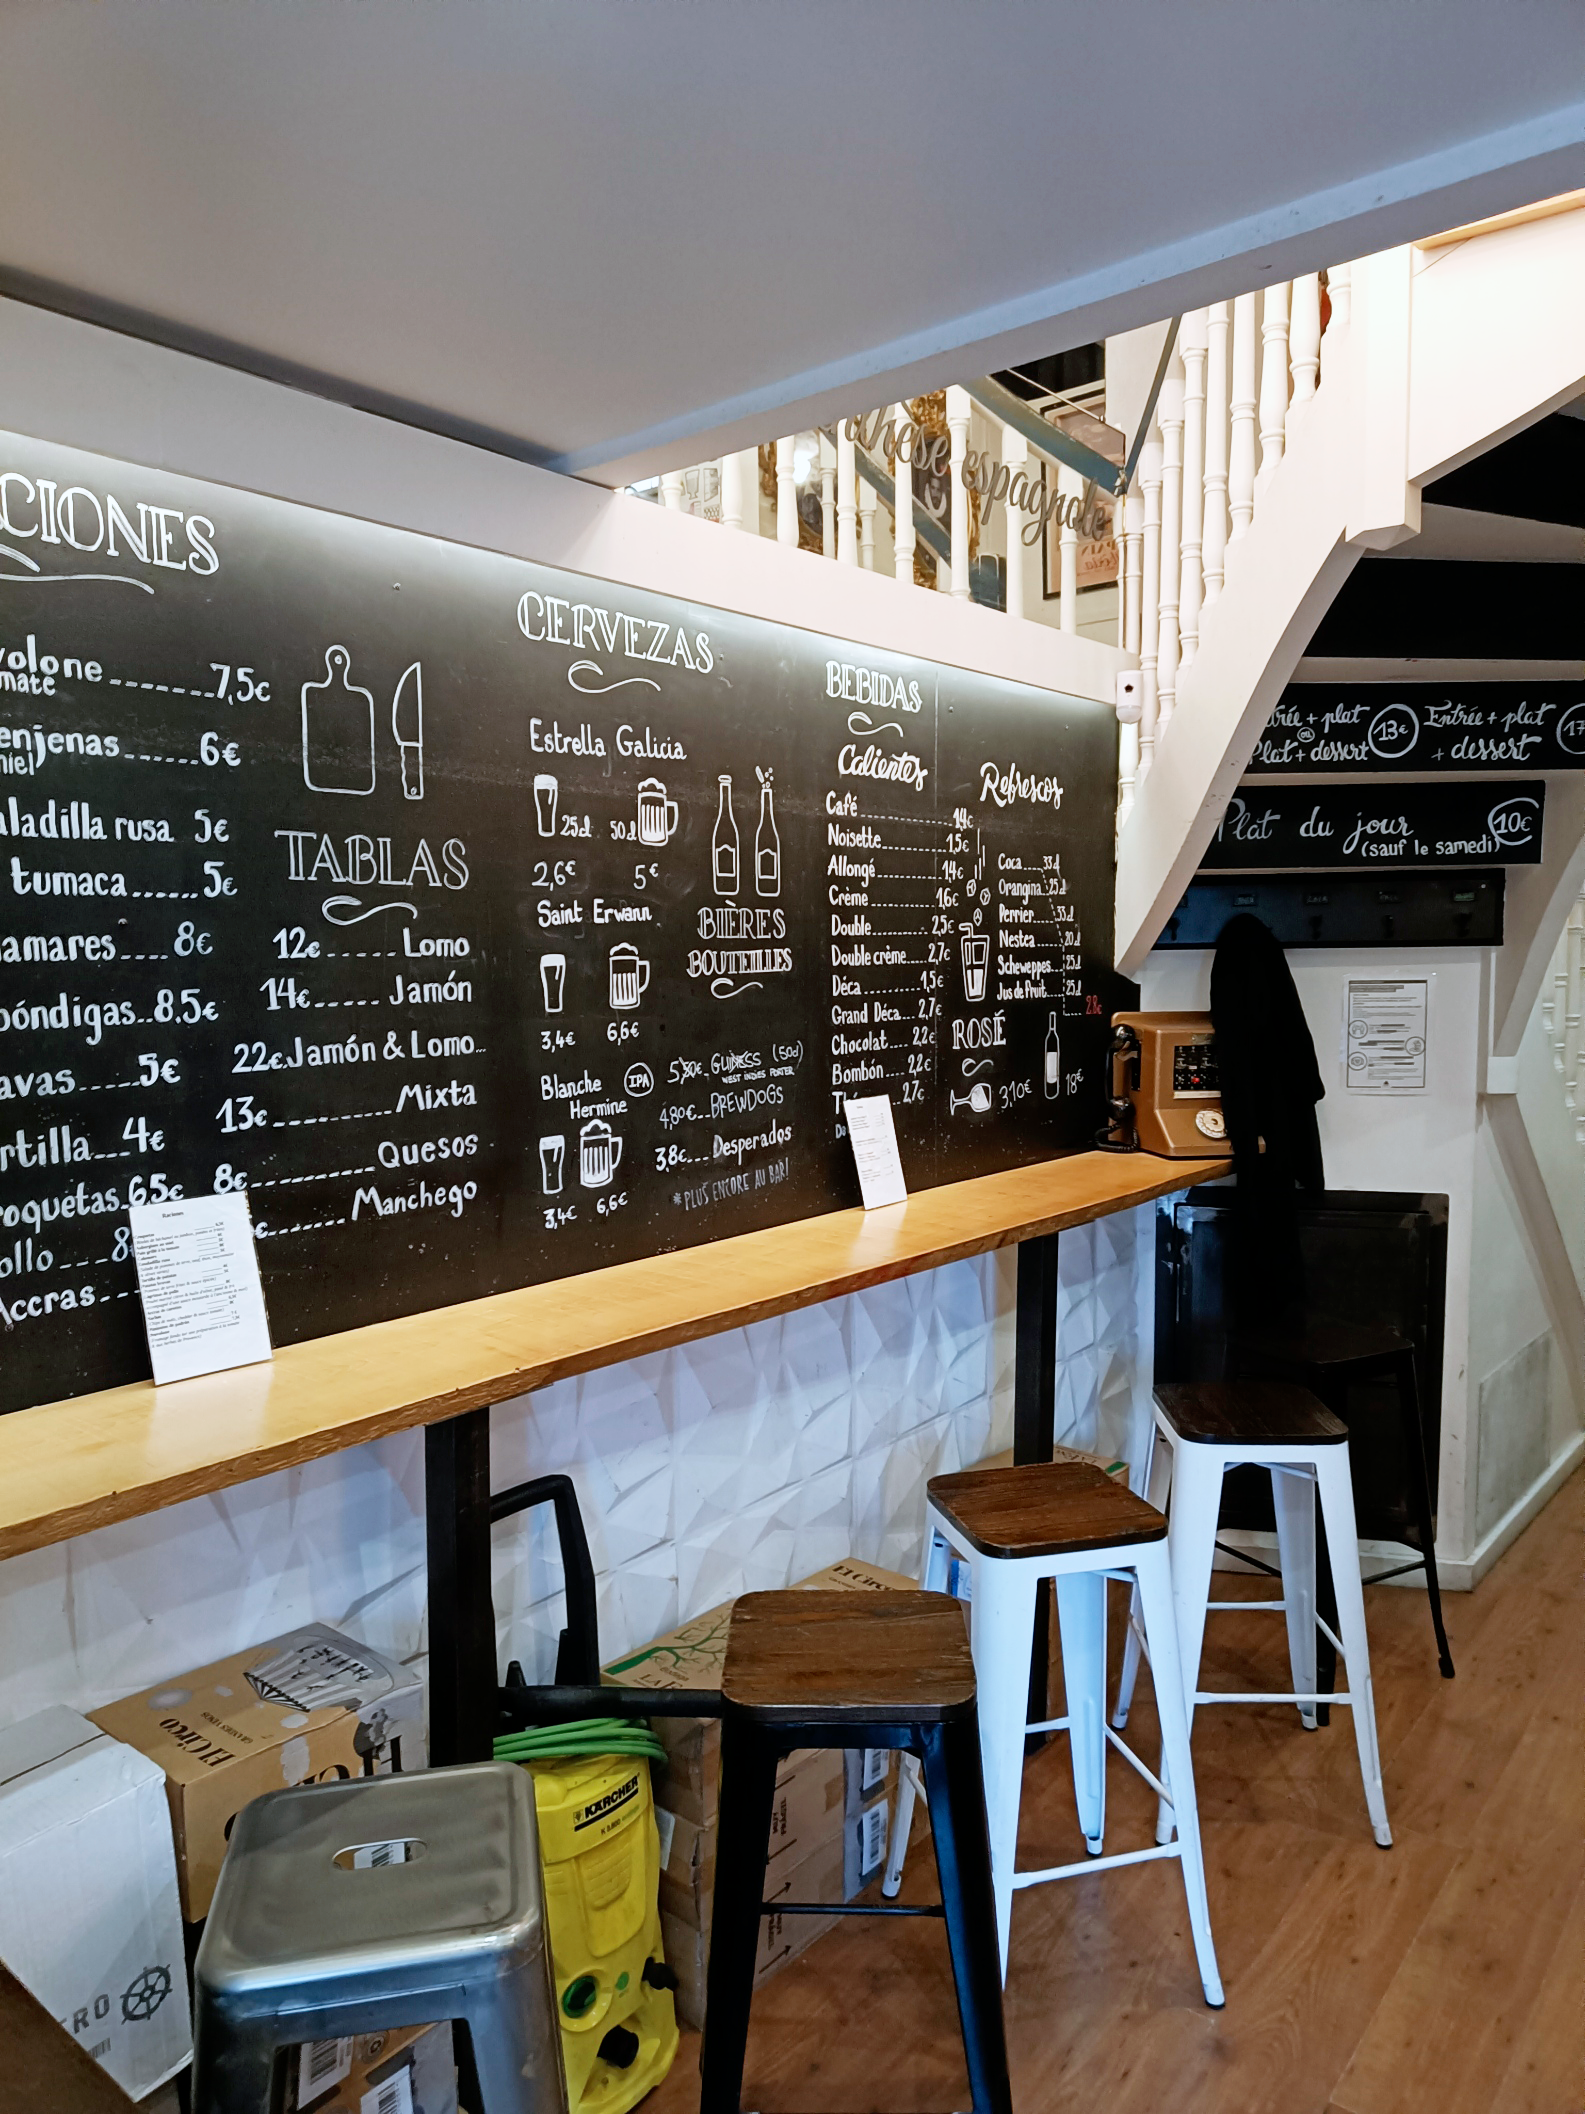 CIONES
volone ........7,5€
mate
enjenas......6€
miel)
aladilla rusa 5€
tumaca......5€
amares....8€
bóndigas..8.5€
avas.....5€
rtilla...4€
roquetas.6.5€
ollo ---8
Accras---
TABLAS
12€..... Lomo
14€..... Jamón
22€.Jamón & Lomo...
13€..........Mixta
8€..........Quesos
€.......Manchego
CERVEZAS
Estrella Galicia
25cl 50cl
2,6€ 5€
Saint Erwann
3,4€ 6,6€
Blanche Hermine IPA
3,4€ 6,6€
BIÈRES
BOUTEILLES
GUINESS (50cl)
WEST INDIES PORTER
4,80€...BREWDOGS
3,8€...Desperados
*PLUS ENCORE AU BAR!
BEBIDAS
Calientes
Café.............1,4€
Noisette.........1,5€
Allongé..........1,4€
Crème............1,6€
Double.........2,5€
Double crème....2,7€
Déca...........1,5€
Grand Déca...2,7€
Chocolat....2,2€
Bombón....2,2€
2,7€
Refrescos
Coca....33cl
Orangina..25cl
Perrier....33cl
Nestea.....20cl
Scheweppes..25cl
Jus de fruit....25cl
2.8€
ROSÉ
3,10€ 18€
hese espagnole
trée + plat
ou
Plat + dessert
13€
Entrée + plat
+ dessert
17
Plat du jour
(sauf le samedi)
10€
Raciones
El Circo
GRANDES VINOS
El Circo
KÄRCHER